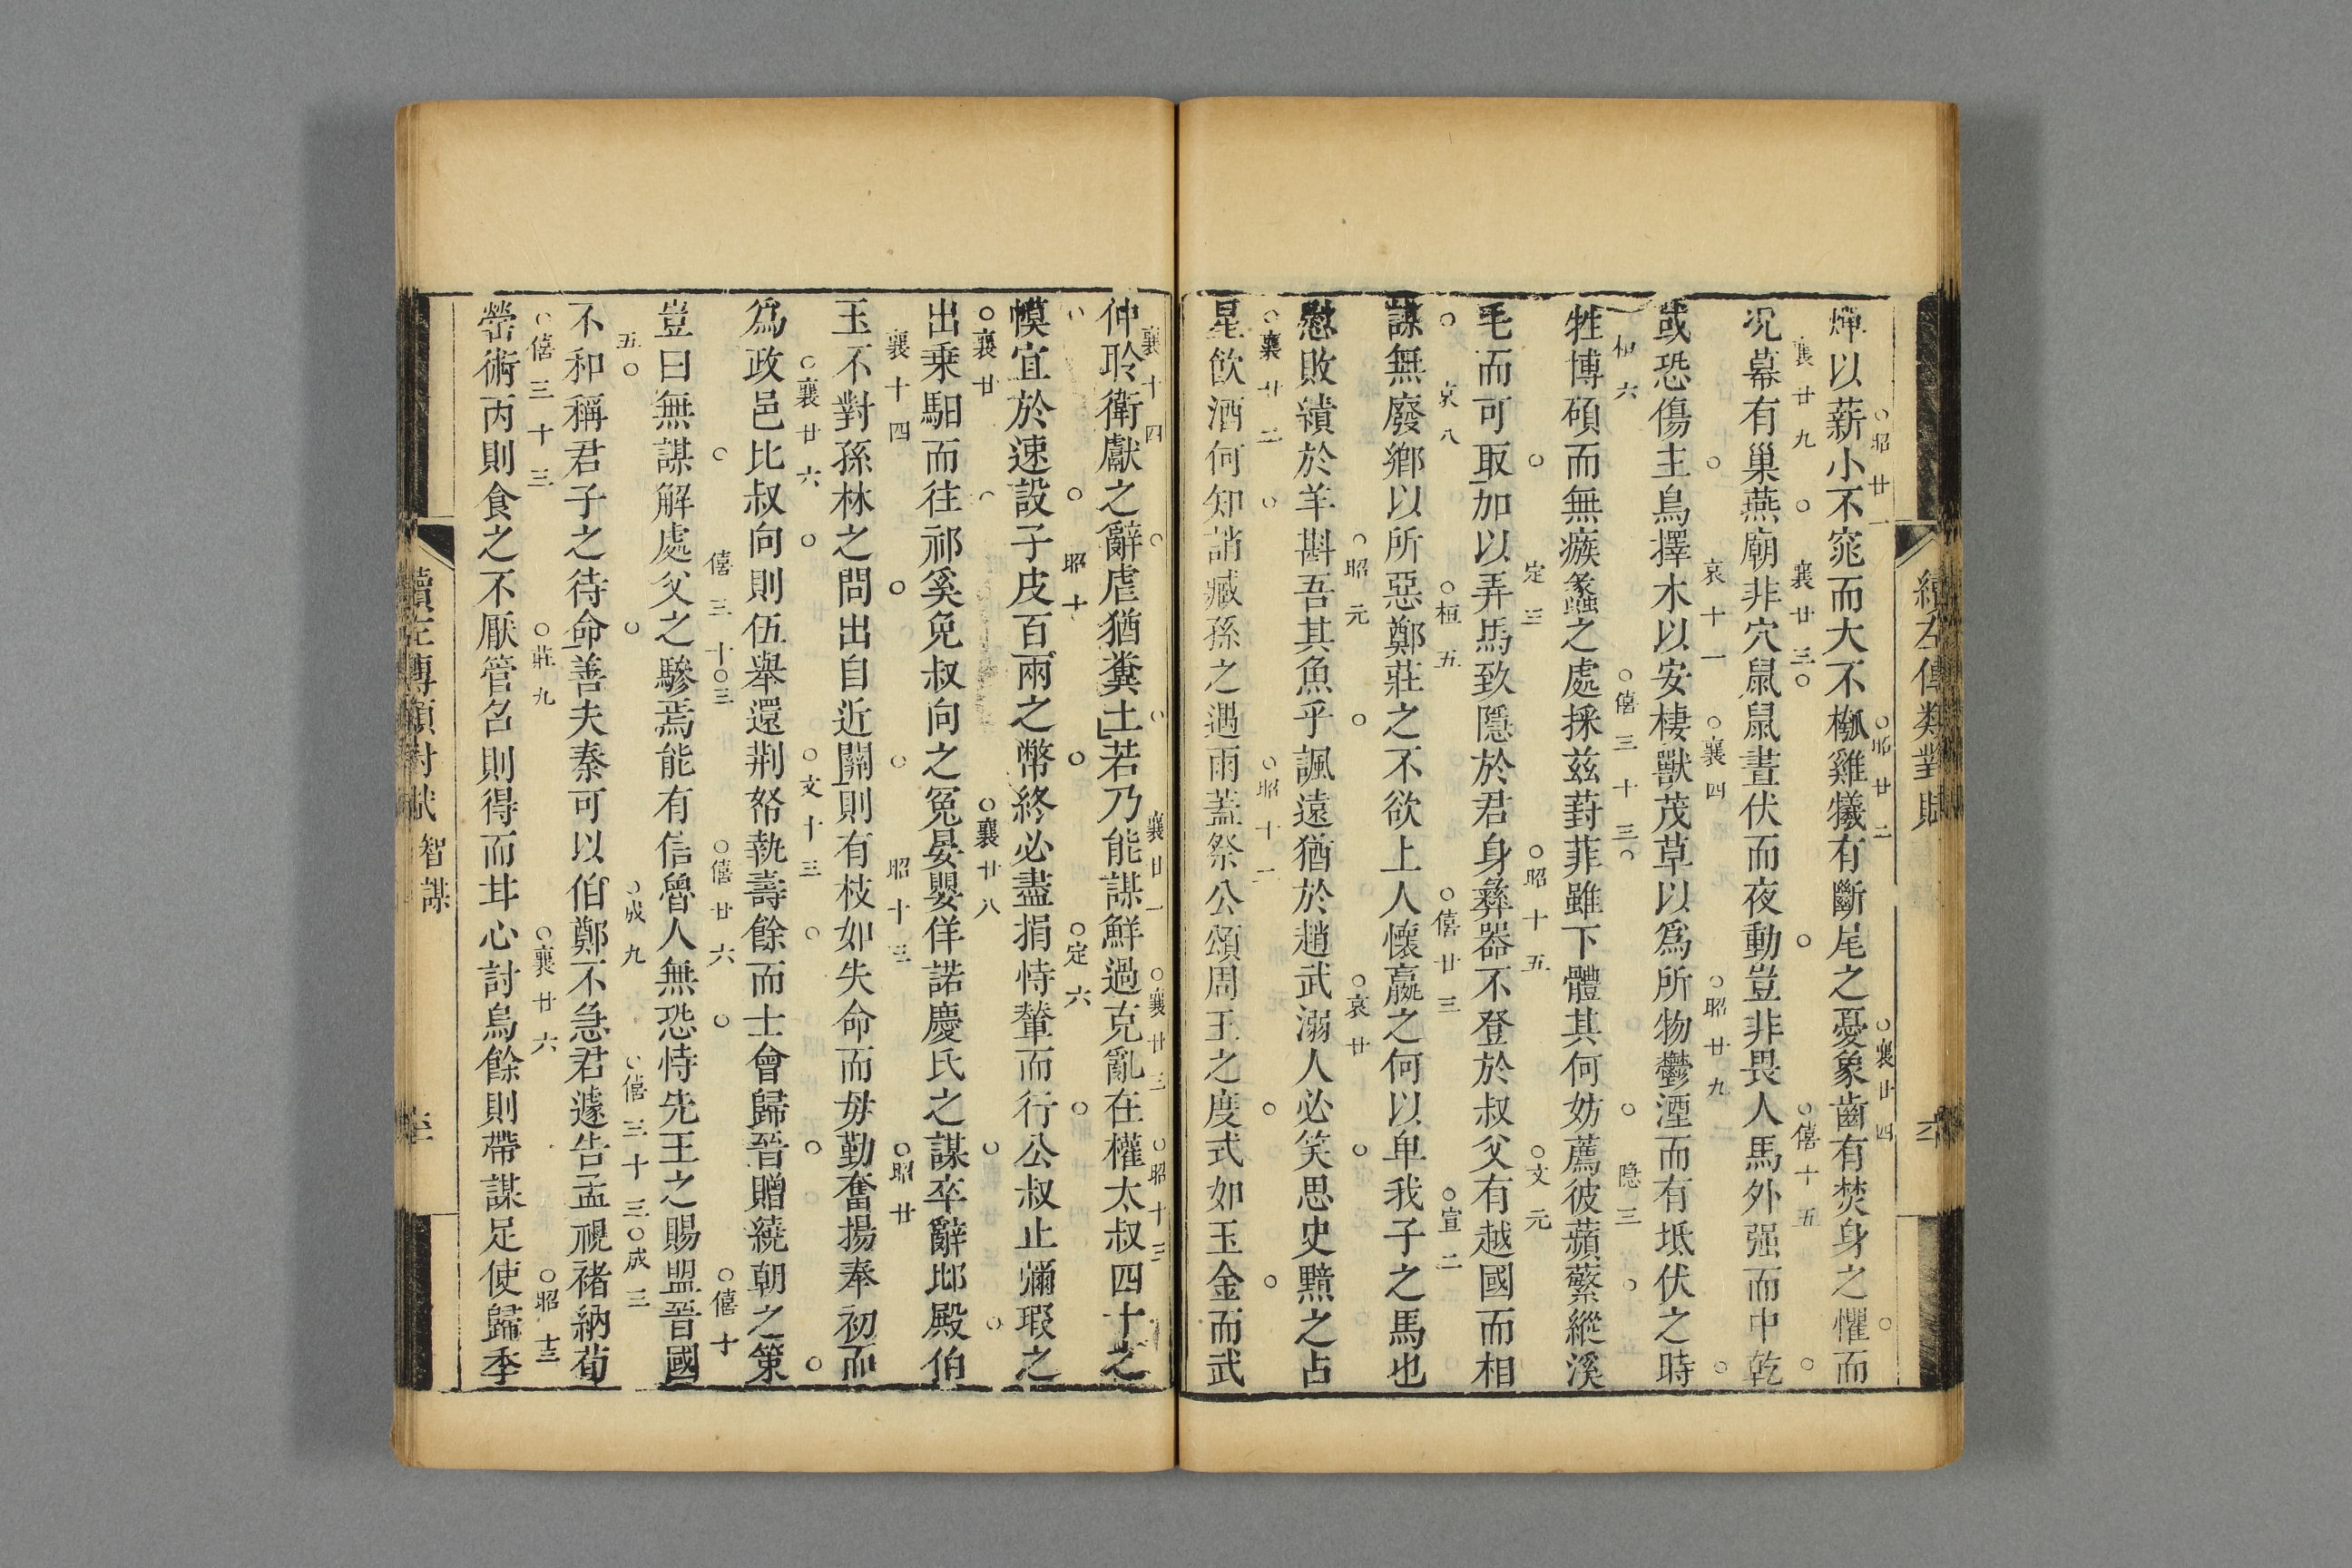 續左傳類對賦
燀以薪小不窕而大不槬雞犧有斷尾之憂象齒有焚身之懼而
○昭廿一○昭廿二○襄廿四○
况幕有巢燕廟非穴鼠鼠晝伏而夜動豈非畏人馬外强而中乾
襄廿九○襄廿三○○僖十五○
或恐傷主鳥擇木以安棲獸茂草以爲所物鬱湮而有坻伏之時
○哀十一○襄四○昭廿九○
牲博碩而無瘯蠡之處採兹葑菲雖下體其何妨薦彼蘋蘩縱溪
桓六○僖三十三○○隐三○
毛而可取加以弄馬致隱於君身彝器不登於叔父有越國而相
○定三○昭十五○文元
謀無廢鄉以所惡鄭莊之不欲上人懷嬴之何以卑我子之馬也
○哀八○桓五○僖廿三○宣二
慰敗績於羊斟吾其魚乎諷遠猶於趙武溺人必笑思史黯之占
○昭元○○哀廿○
星飲酒何知誚臧孫之遇雨蓋祭公頌周王之度式如玉金而武
○襄廿二○○昭十二○○
仲聆衛獻之辭虐猶糞土若乃能謀鮮過克亂在權太叔四十之
襄十四○○襄廿一○襄廿三○昭十三
幙宜於速設子皮百兩之幣終必盡捐恃輦而行公叔止彌瑕之
○○昭十○○定六○
出乗馹而往祁奚免叔向之冤晏嬰佯諾慶氏之謀卒辭邶殿伯
○襄廿○○襄廿八○○
玉不對孫林之問出自近關則有枝如失命而毋勤奮揚奉初而
襄十四○○昭十三○昭廿
爲政邑比叔向則伍舉還荆帑執壽餘而士會歸晉贈繞朝之策
○襄廿六○○文十三○○○
豈曰無謀解處父之驂焉能有信魯人無恐恃先王之賜盟晉國
○僖三十三○○僖廿六○○僖十
不和稱君子之待命善夫秦可以伯鄭不急君遽告孟視禇納荀
五○○○成九○僖三十三○成三
罃術丙則食之不厭管召則得而甘心討烏餘則帶謀足使歸季
○僖三十三○莊九○襄廿六○昭十三
續左傳類對賦
智謀